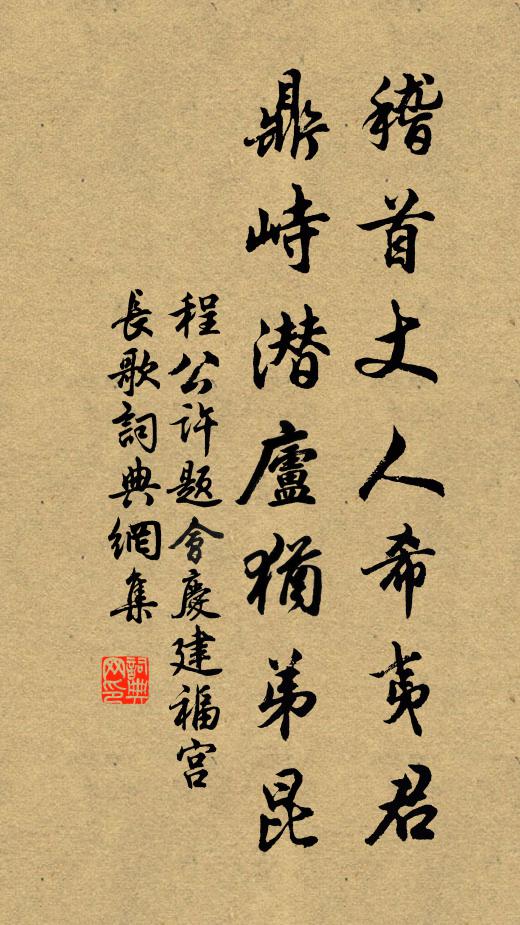 稽首丈人希夷君
鼎峙潛廬猶弟昆
程公許題會慶建福宮
長歌詞典網集
詞典網印